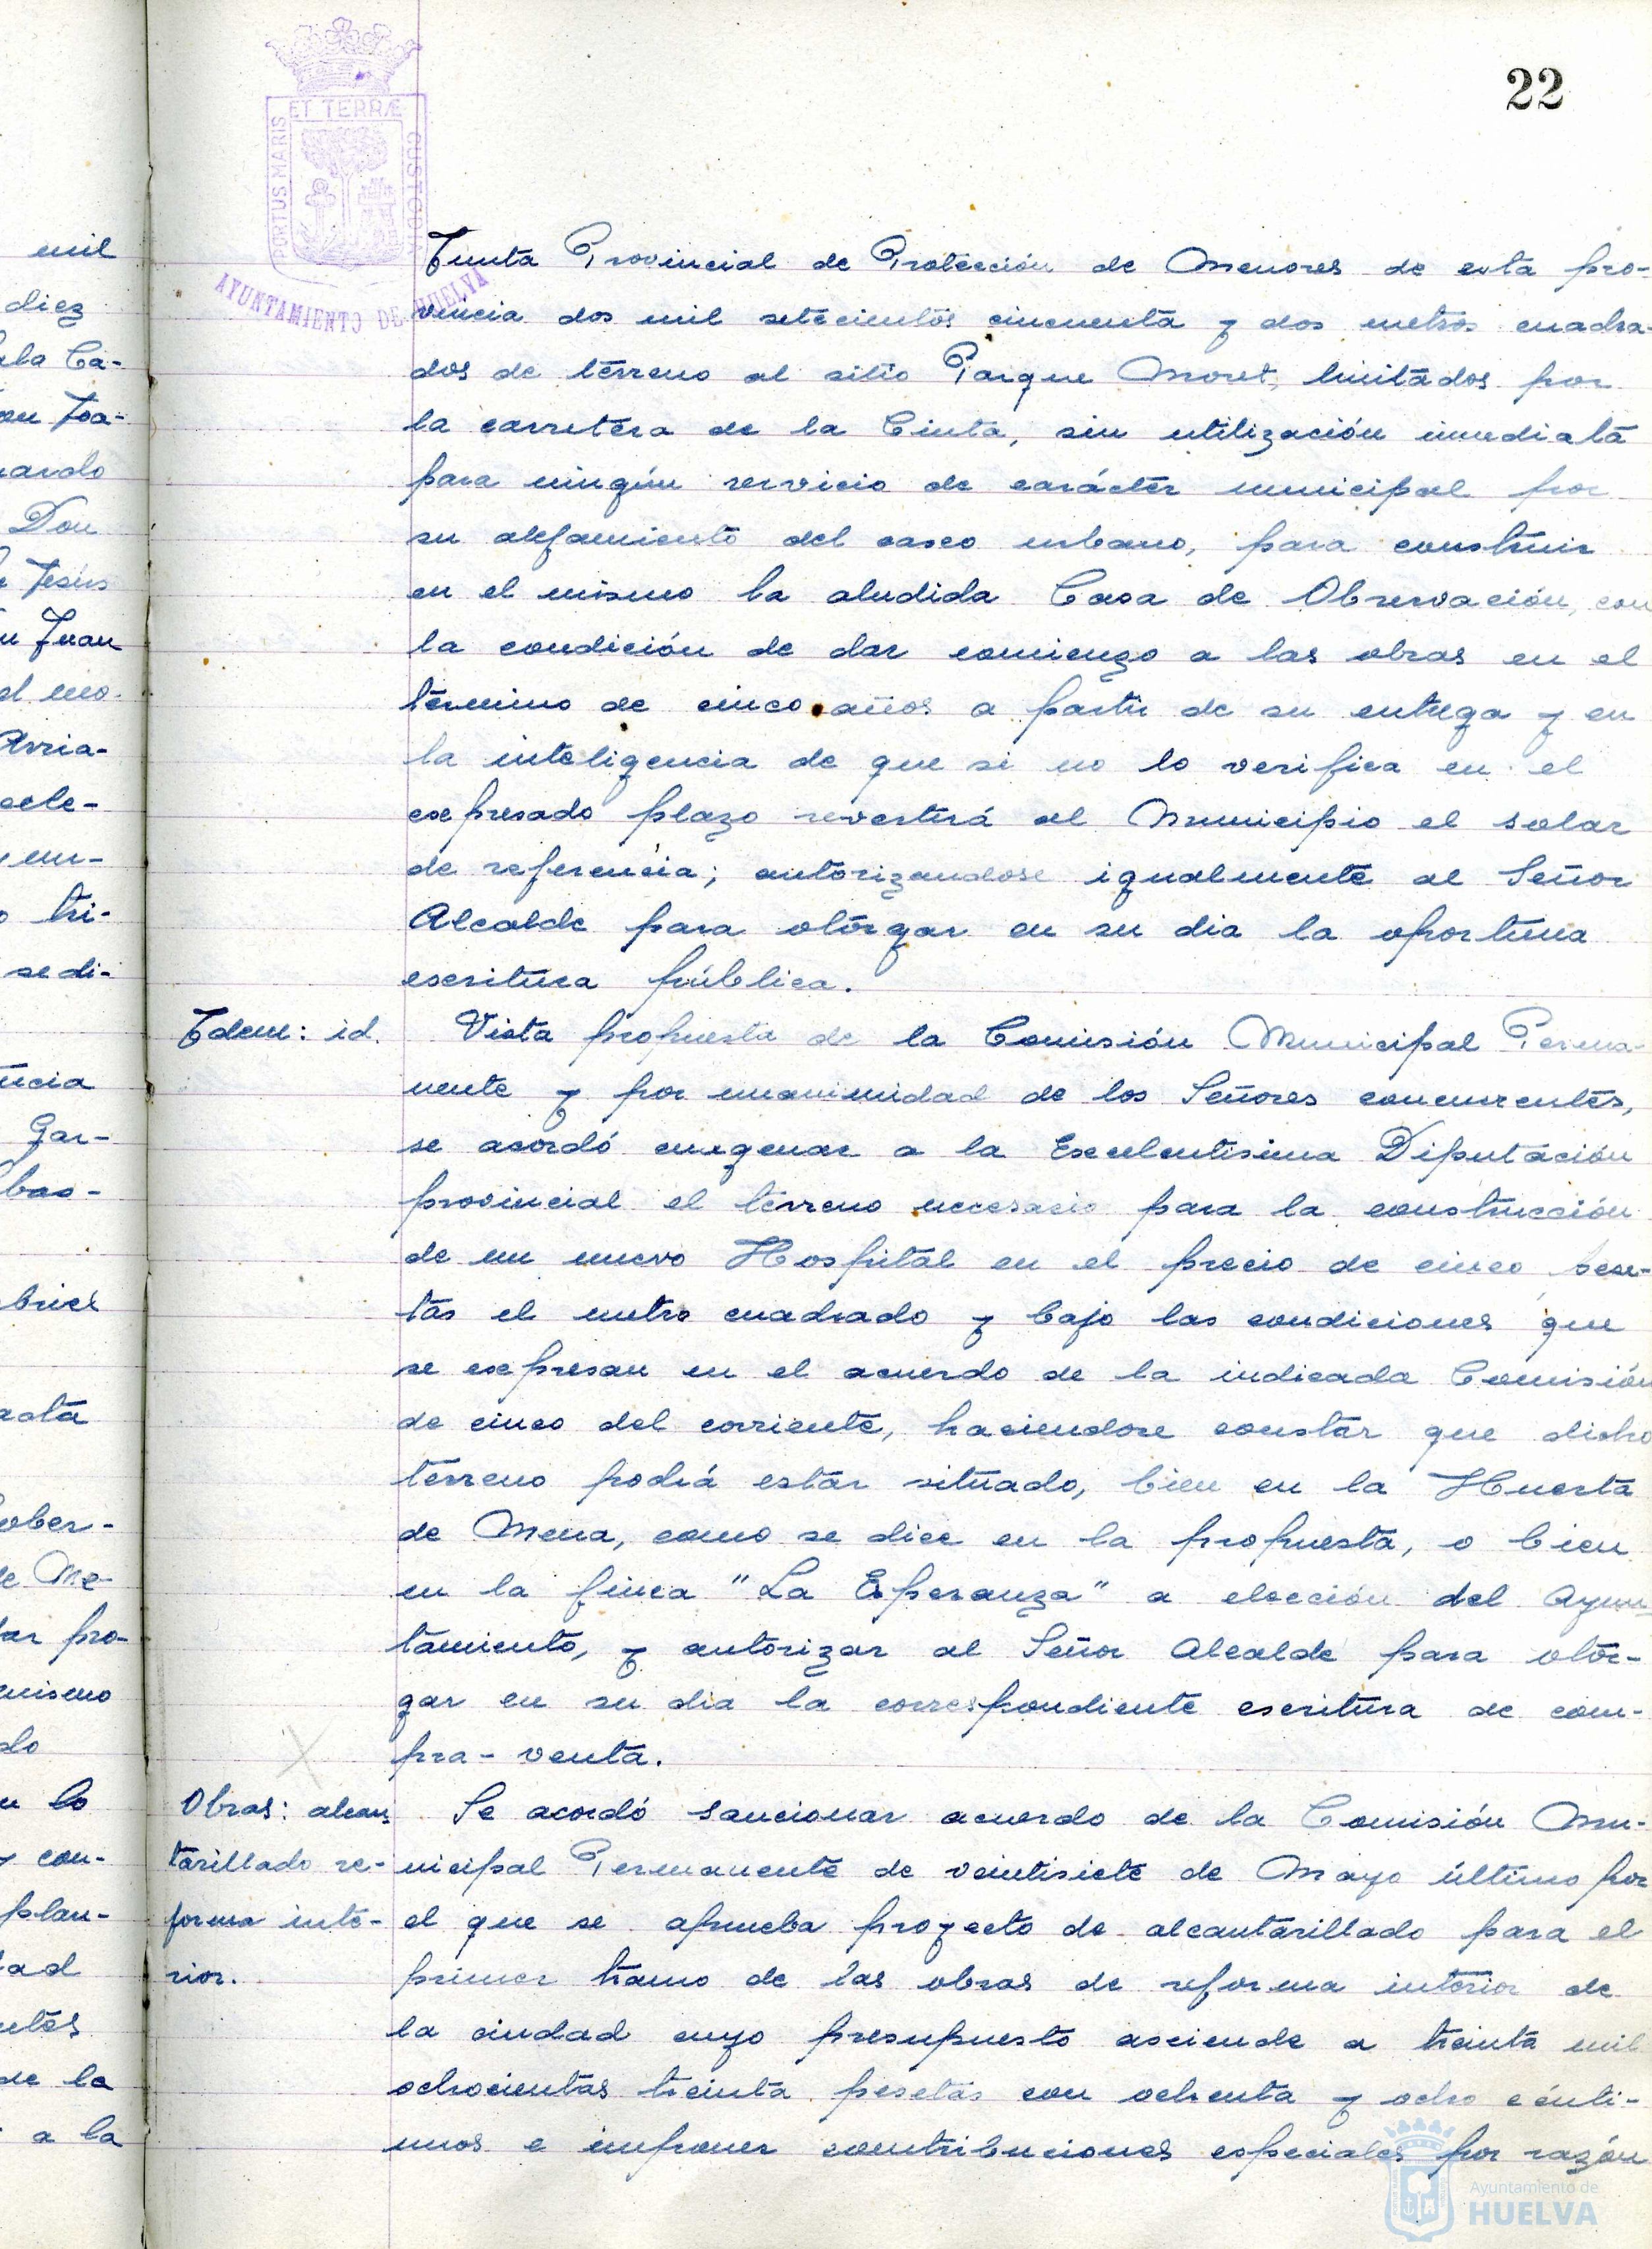 22
PORTUS MARIS ET TERRÆ CUSTODIA
AYUNTAMIENTO DE HUELVA
mil
diez
Ca-
Joa-
Don
Jesús
Juan
el mo-
Arria-
cele-
tri-
se di-
Gar-
pro-
mismo
lo
y con-
plan-
de la
a la
Junta Provincial de Protección de Menores de esta pro-
vincia dos mil setecientos cincuenta y dos metros cuadra-
dos de terreno al sitio Parque Moret, limitados por
la carretera de la Cinta, sin utilización inmediata
para ningún servicio de carácter municipal por
su alejamiento del casco urbano, para construir
en el mismo la aludida Casa de Observación, con
la condición de dar comienzo a las obras en el
término de cinco años a partir de su entrega y en
la inteligencia de que si no lo verifica en el
expresado plazo revertirá al Municipio el solar
de referencia; autorizandose igualmente al Señor
Alcalde para otorgar en su dia la oportuna
escritura pública.
Idem: id. Vista propuesta de la Comisión Municipal Perma-
nente y por unanimidad de los Señores concurrentes,
se acordó enegenar a la Excelentisima Diputación
provincial el terreno necesario para la construcción
de un nuevo Hospital en el precio de cinco pese-
tas el metro cuadrado y bajo las condiciones que
se expresan en el acuerdo de la indicada Comisión
de cinco del corriente, haciendose constar que dicho
terreno podrá estar situado, bien en la Huerta
de Mena, como se dice en la propuesta, o bien
en la finca "La Esperanza" a elección del Ayun-
tamiento, y autorizar al Señor Alcalde para otor-
gar en su dia la correspondiente escritura de com-
pra-venta.
Obras: alcan- Se acordó sancionar acuerdo de la Comisión Mu-
tarillado re- nicipal Permanente de veintisiete de Mayo último por
forma inte- el que se aprueba proyecto de alcantarillado para el
rior. primer tramo de las obras de reforma interior de
la ciudad cuyo presupuesto asciende a treinta mil
ochocientas treinta pesetas con ochenta y ocho cénti-
mos e imponer contribuciones especiales por razón
Ayuntamiento de
HUELVA